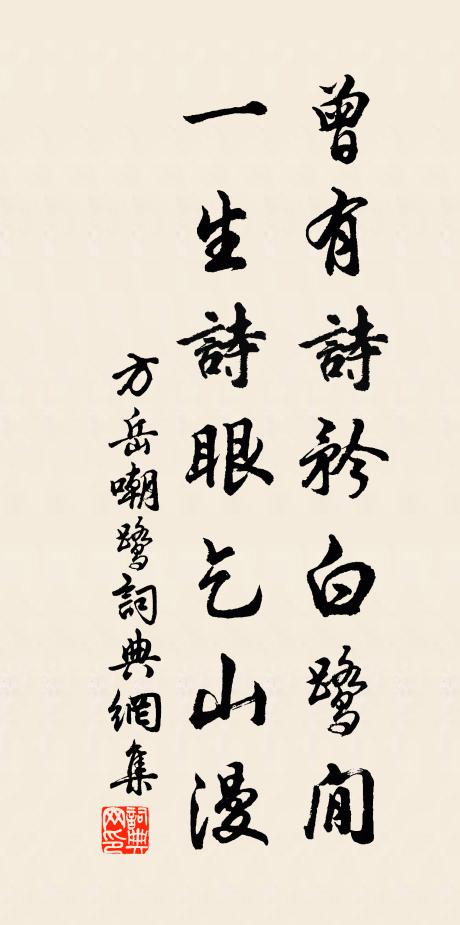 曾有詩矜白鷺閒
一生詩眼乞山漫
方岳嘲鷺詞典網集
詞典
网印